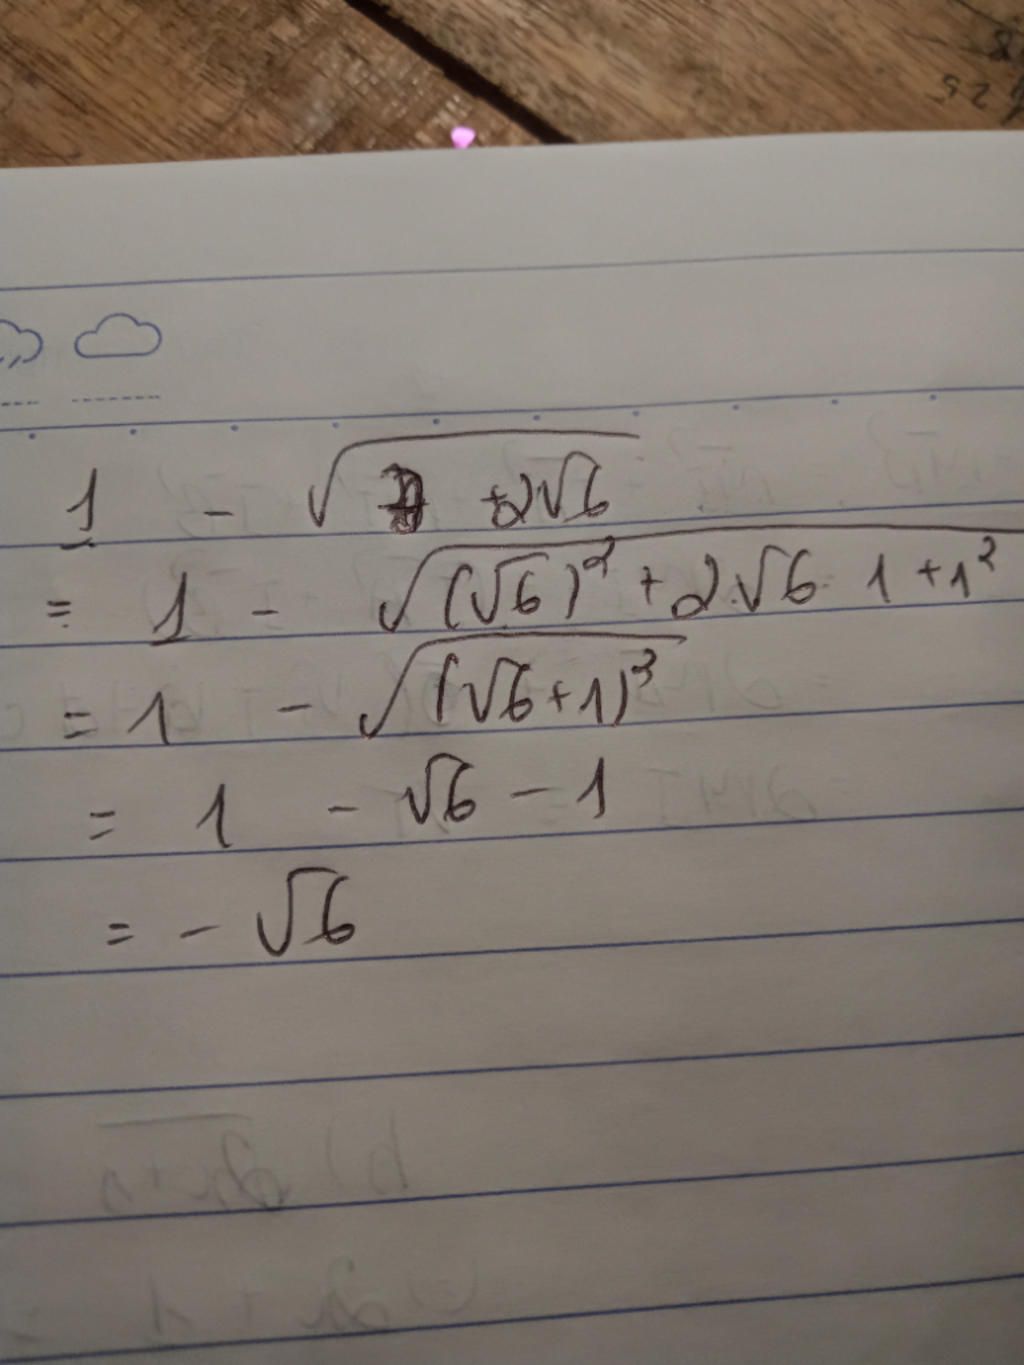 1 - √(7 + 2√6)
= 1 - √((√6)² + 2.√6 . 1 + 1²)
= 1 - √((√6 + 1)²)
= 1 - √6 - 1
= - √6